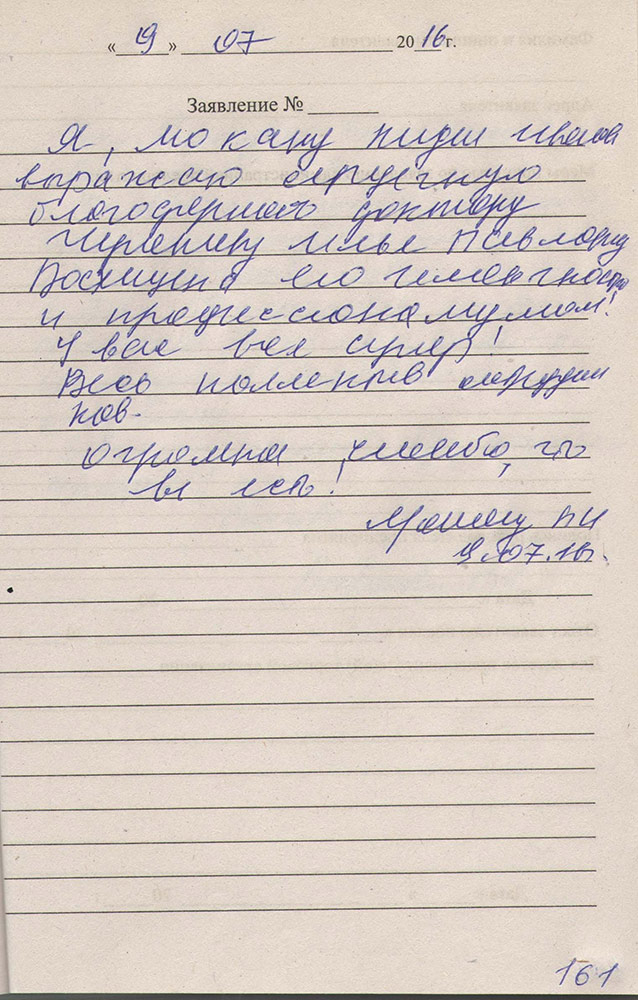 « 9 » 07 2016 г.
Заявление №
Я, Мокану Лидия Ивановна
выражаю огромную
благодарность доктору
Илье Павловичу
Восхищена его
и профессионализмом!
У вас все супер!
Весь коллектив сотрудни
ков.
огромное спасибо, что
вы есть!
Мокану ЛИ
9.07.16.
161